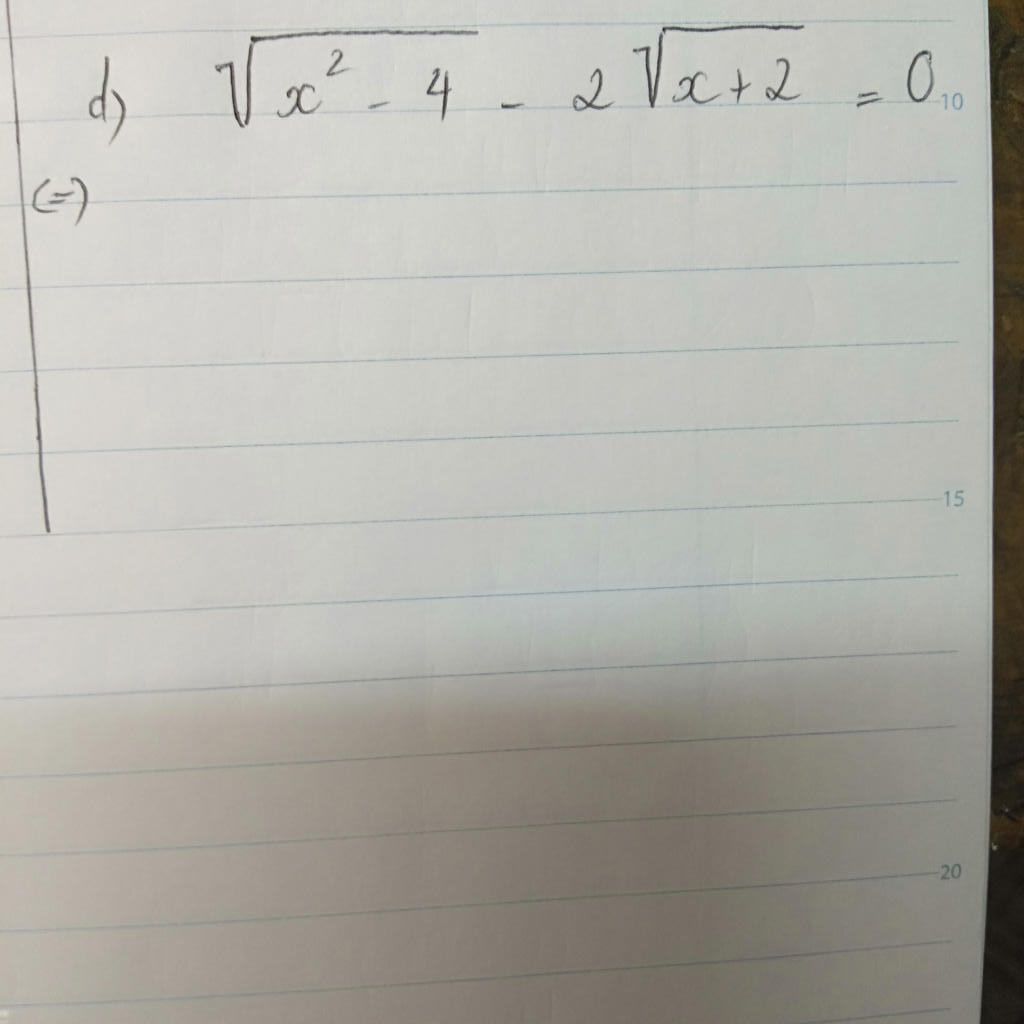 d) √(x² - 4) - 2√(x + 2) = 0
10
(=)
15
20